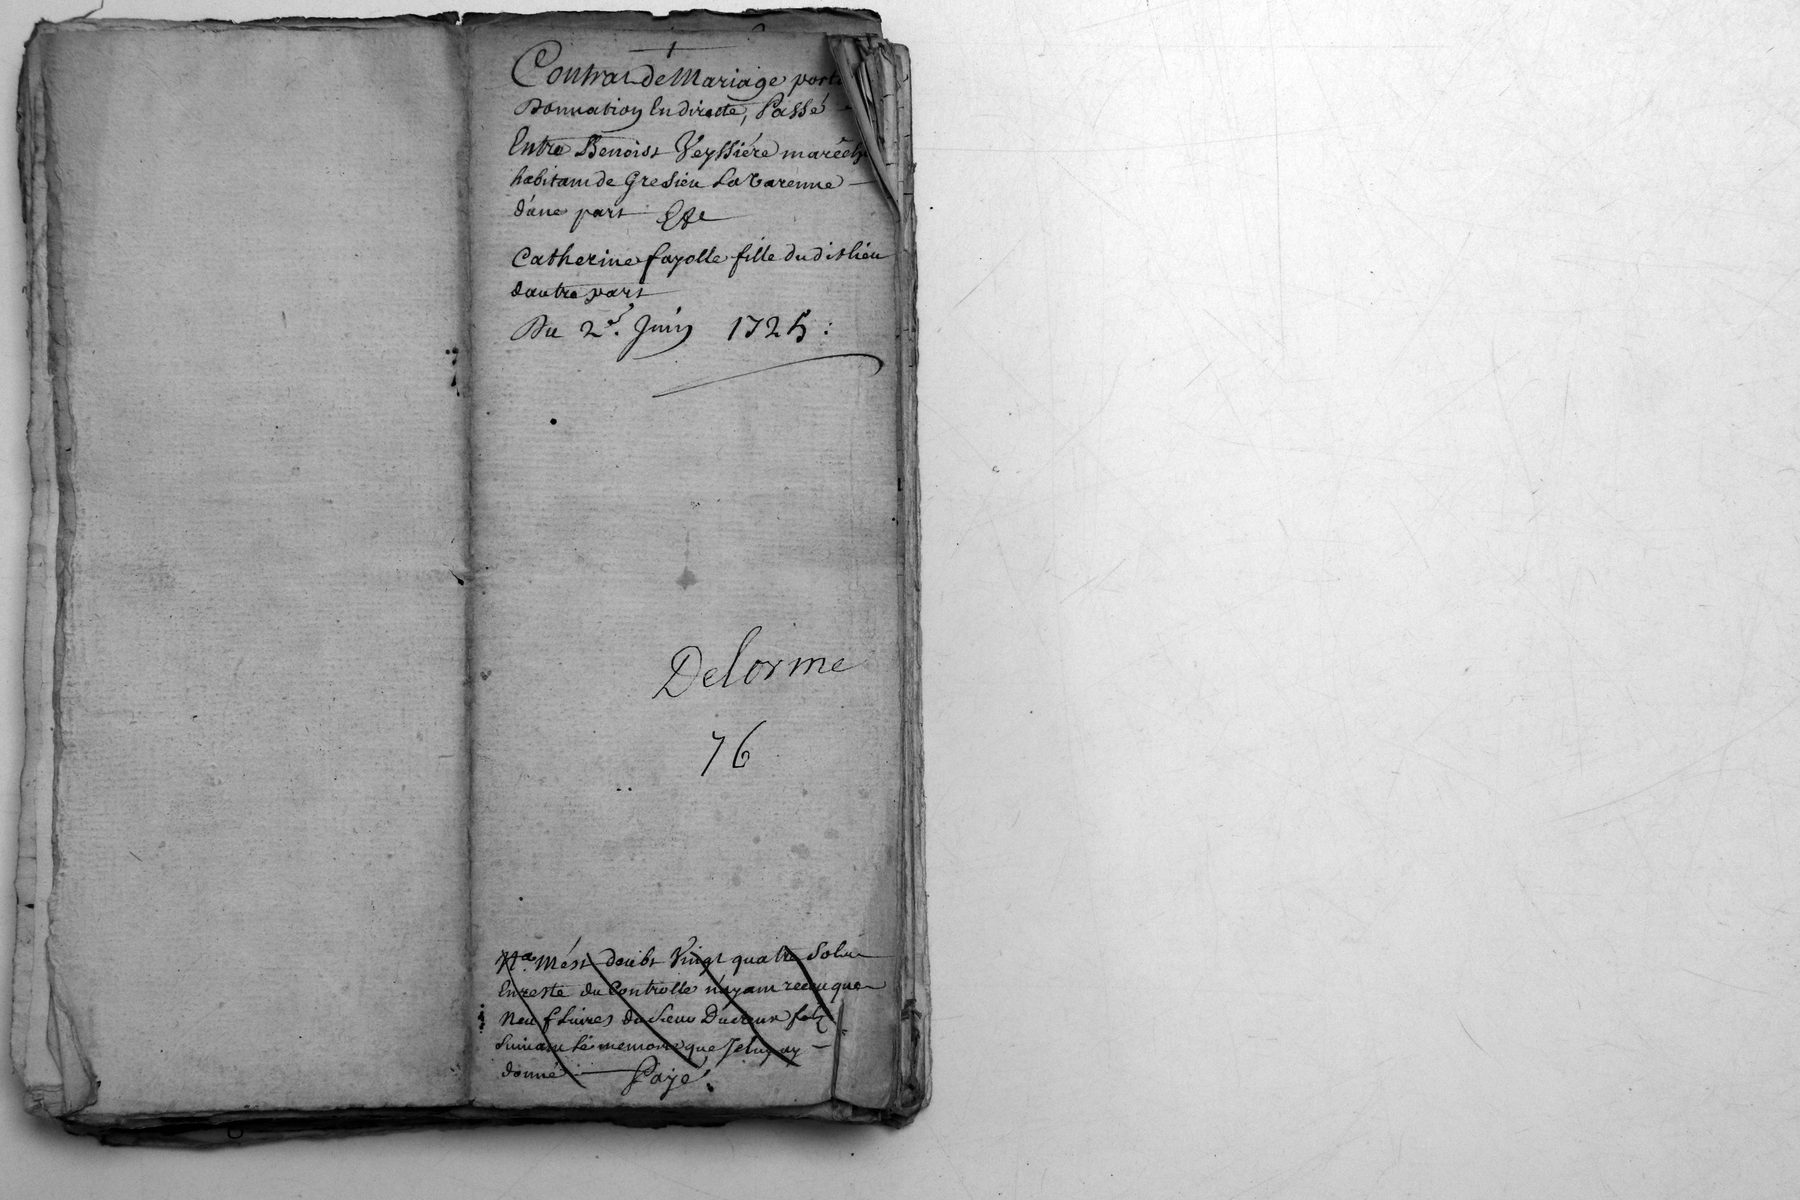 Contrat de Mariage port
Donnation En directe, Passé
Entre Benoist Veyssiére maréch
habitant de Gresieu La Varenne
d'une part Et
Catherine fayolle fille dudit lieu
dautre part
Du 2e. Juin 1725 :
Delorme
76
Na. M'est doubt Vingt quatre Sols
En reste du Controlle n'ayant receu que
Neuf Livres du Sieur Ducreux
Suivant Le memoire que Je luy ay
donné Payé